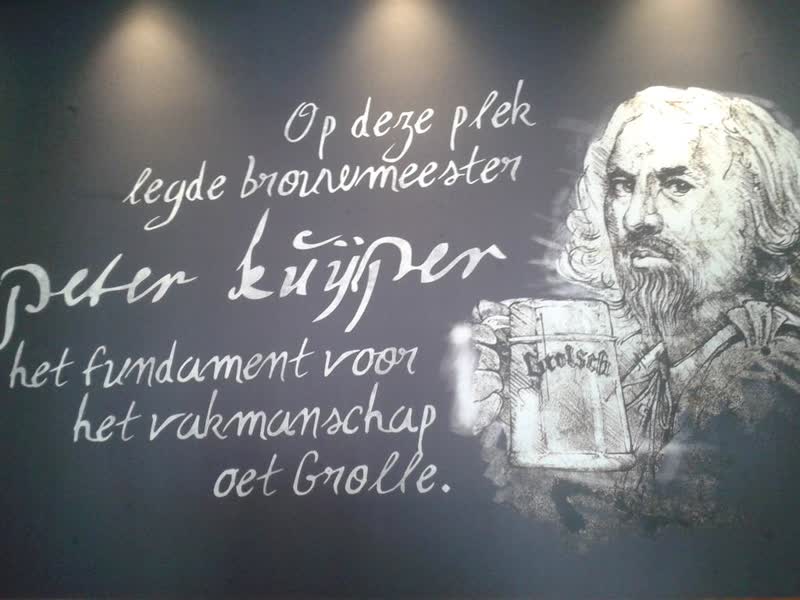 Op deze plek
legde brouwmeester
peter kuÿper
het fundament voor
het vakmanschap
oet Grolle.
Grolsch